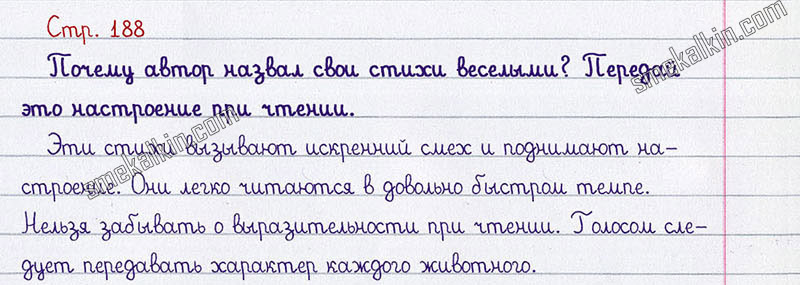 Стр. 188
Почему автор назвал свои стихи веселыми? Передай
это настроение при чтении.
Эти стихи вызывают искренний смех и поднимают на-
строение. Они легко читаются в довольно быстром темпе.
Нельзя забывать о выразительности при чтении. Голосом сле-
дует передавать характер каждого животного.
smekalkin.com
smekalkin.com